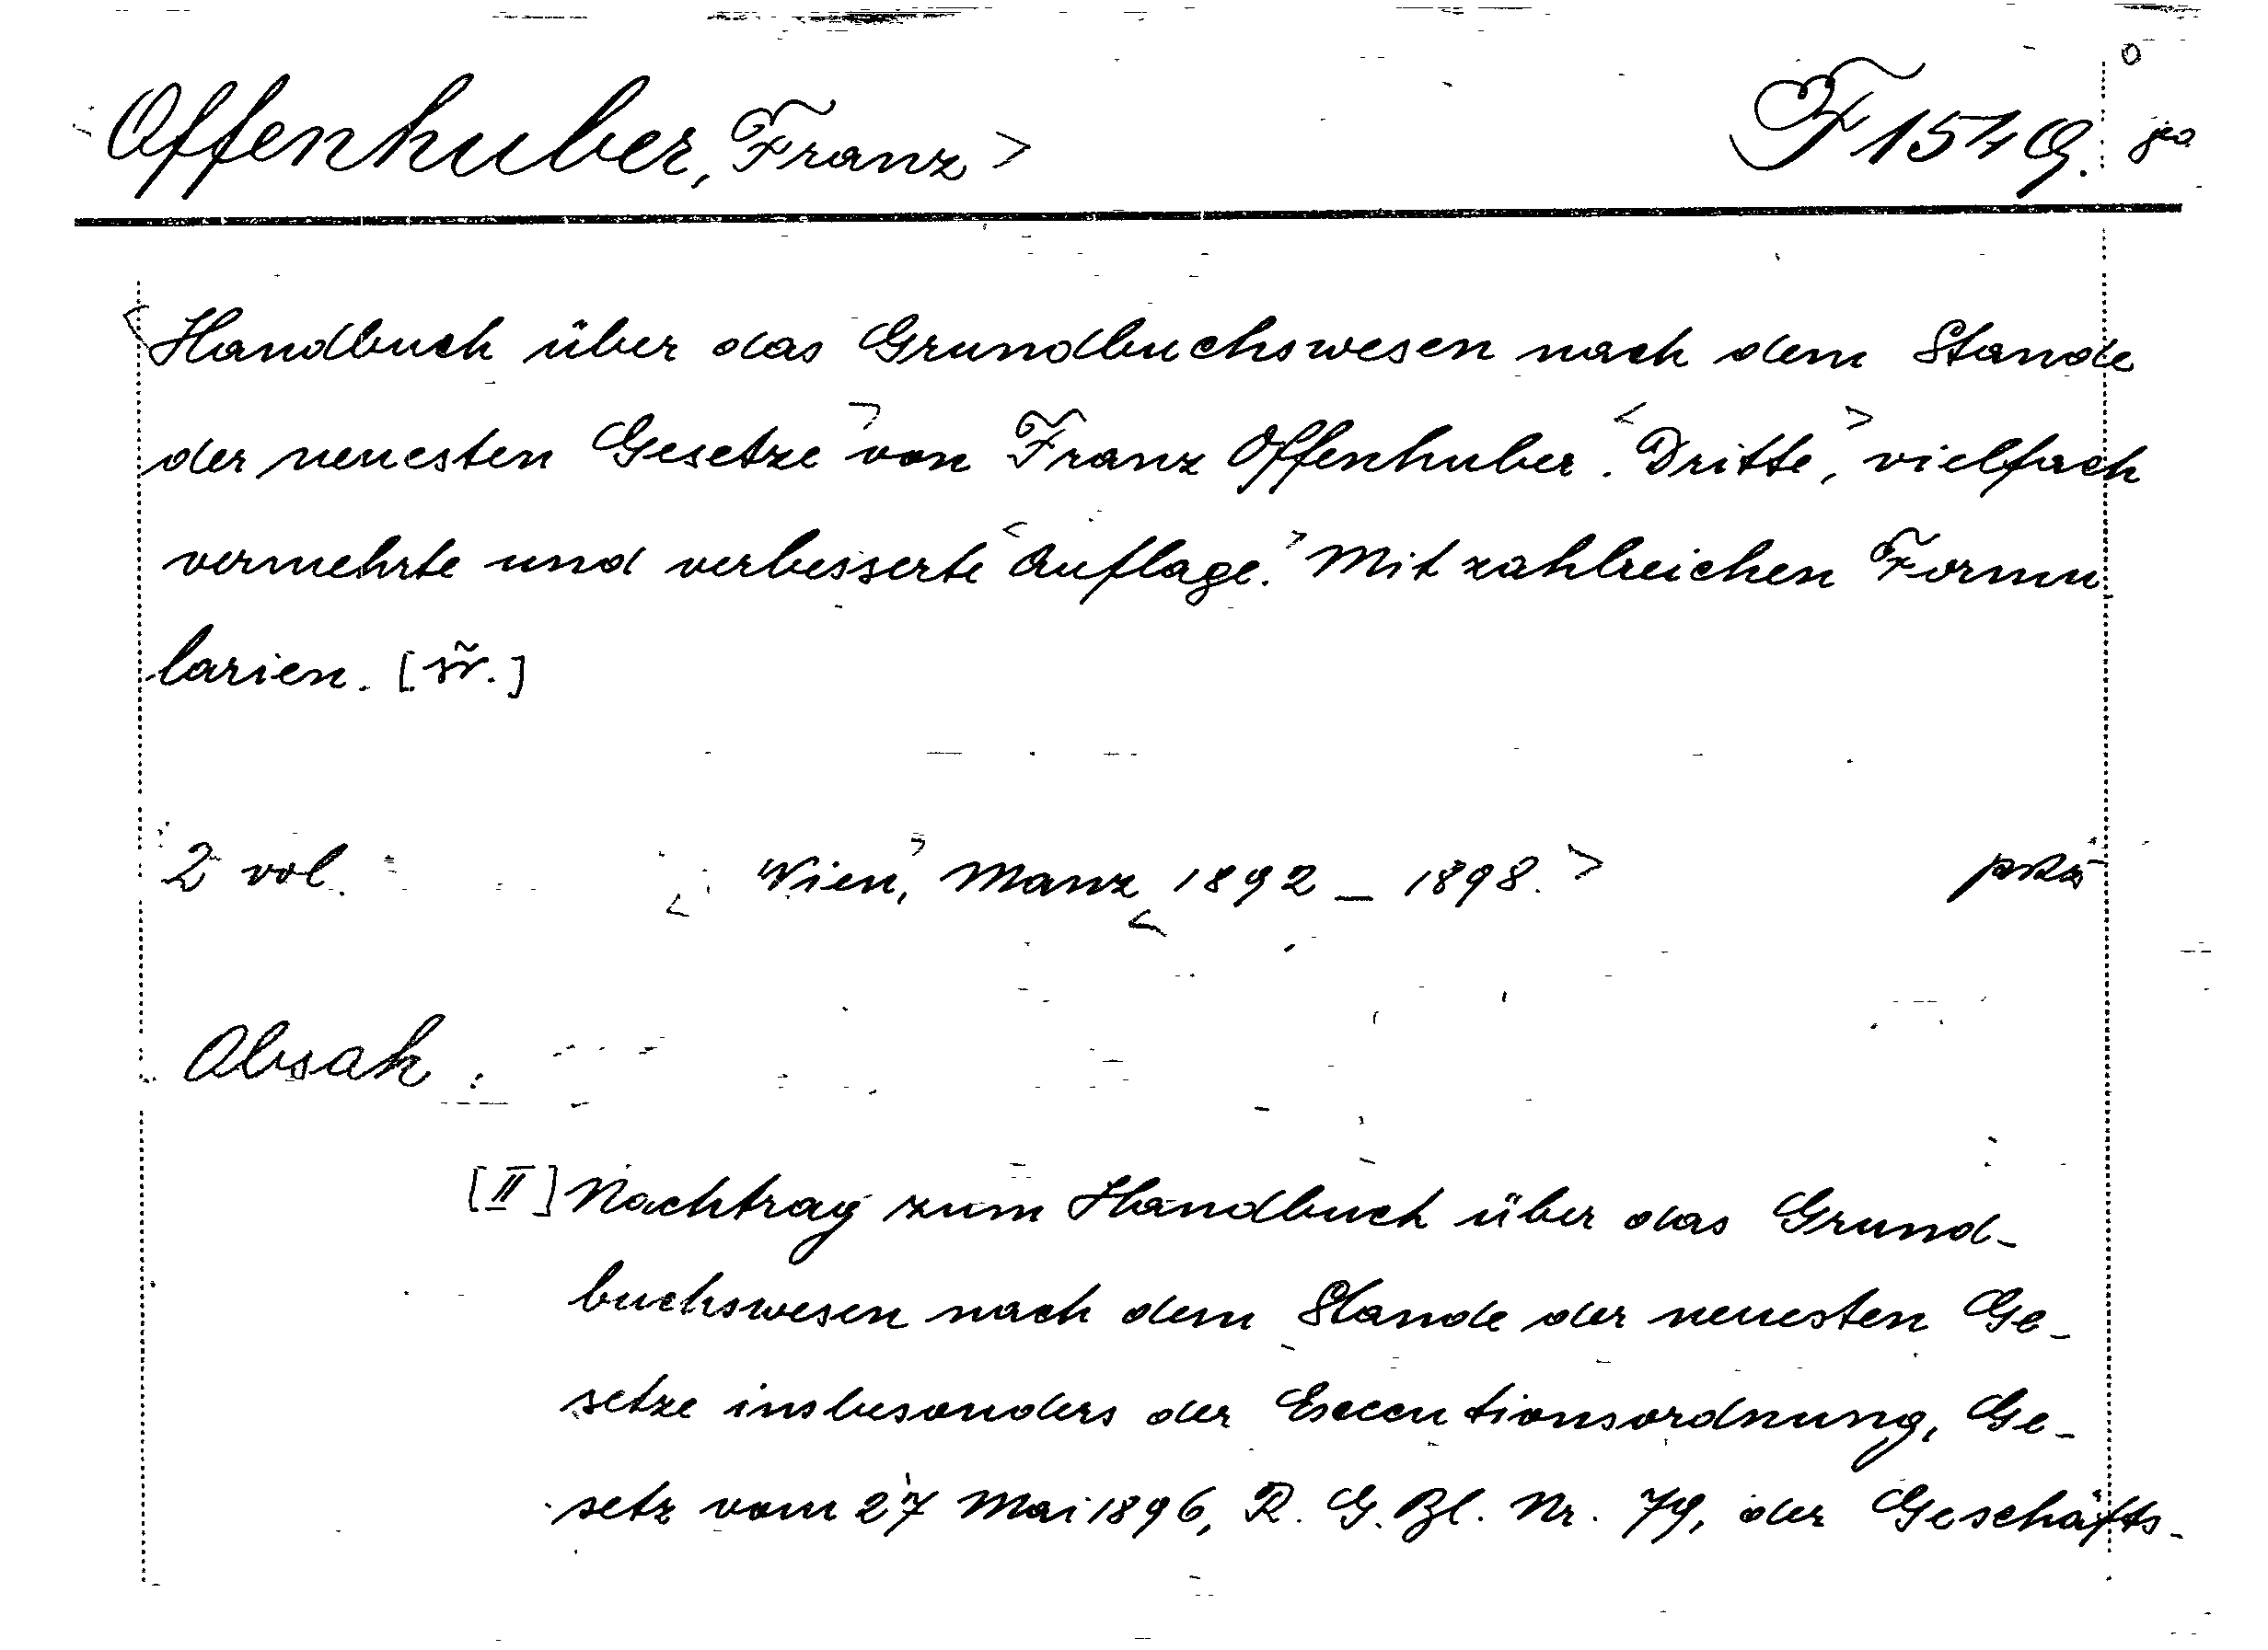 Offenhuber, Franz > F 1549.
<Handbuch über das Grundbuchswesen nach dem Stande
der neuesten Gesetze> von Franz Offenhuber. <Dritte,> vielfach
vermehrte und verbesserte <Auflage.> Mit zahlreichen Formu
larien. [
2 vol. < Wien,> Manz < 1892 – 1898. >
Absak
[II] Nachtrag zum Handbuch über das Grund-
buchswesen nach dem Stande der neuesten Ge-
setze insbesonders der Executionsordnung, Ge-
setz vom 27 Mai 1896, R. G. Bl. Nr. 79, der Geschäfts-